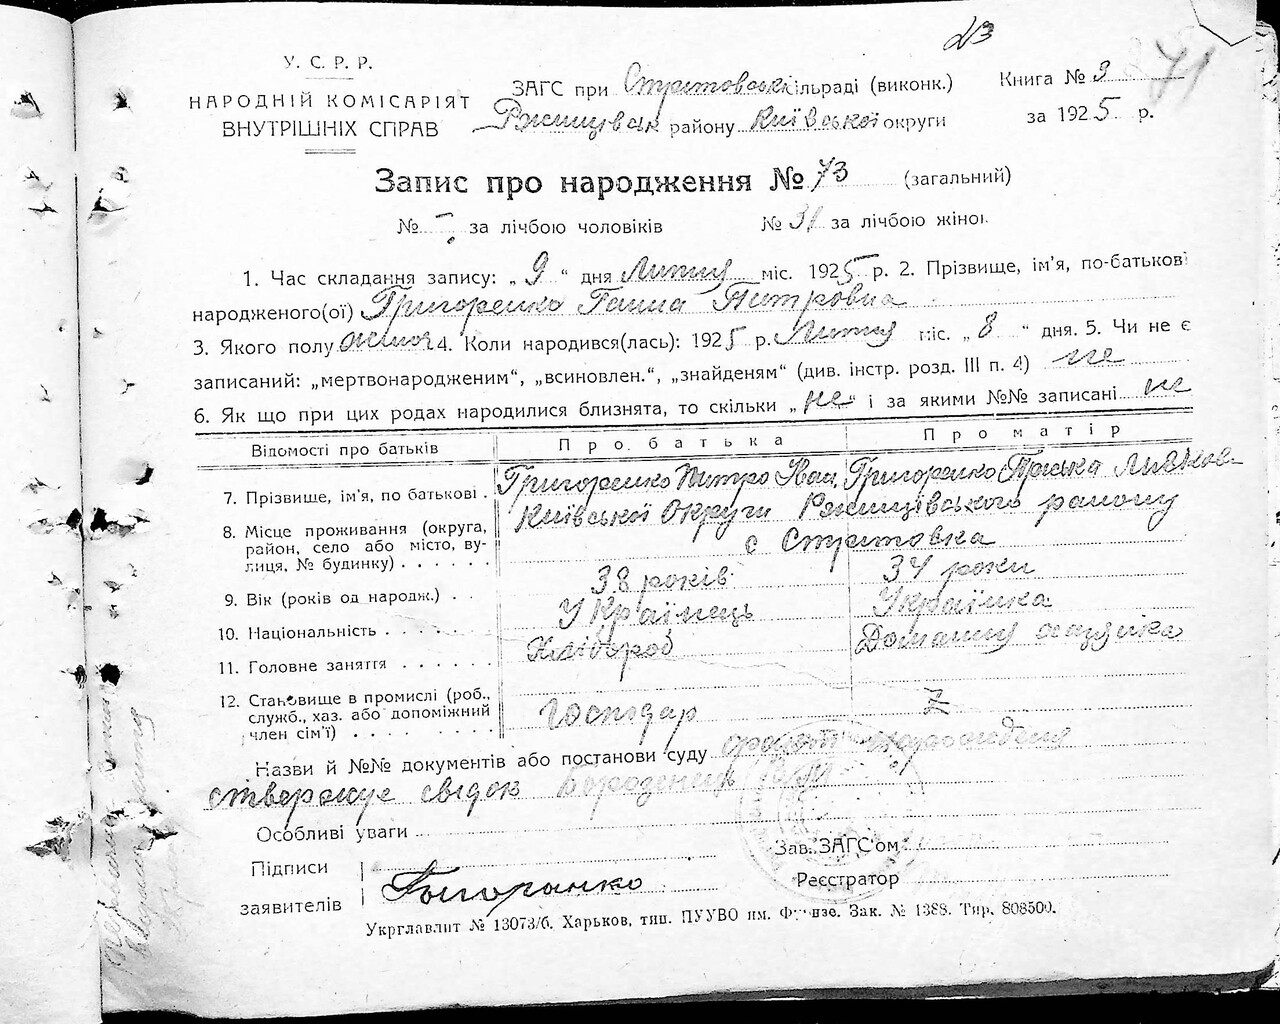 23
71
У. С. Р. Р.
НАРОДНІЙ КОМІСАРІЯТ
ВНУТРІШНІХ СПРАВ
ЗАГС при Стритовськ ільраді (виконк.)
Ржищівськ району Київської округи
Книга № 3
за 1925 р.
Запис про народження № 73 (загальний)
№ - за лічбою чоловіків № 31 за лічбою жінон
1. Час складання запису: „ 9 “ дня Лютня міс. 1925 р. 2. Прізвище, ім'я, по-батькові
народженого(ої) Григоренко Ганна Питровна
3. Якого полу жіноч 4. Коли народився(лась): 1925 р. Лютня міс. „ 8 “ дня. 5. Чи не є
записаний: „мертвонародженим“, „всиновлен.“, „знайденям“ (див. інстр. розд. III п. 4) не
6. Як що при цих родах народилися близнята, то скільки „ не “ і за якими №№ записані не
Відомості про батьків Про батька Про матір
7. Прізвище, ім'я, по батькові . Григоренко Питро Іван Григоренко Пріська Ливков-
8. Місце проживання (округа, Київської Округи Ржищівського району
район, село або місто, ву- с Стритовка
лиця, № будинку) . . . . . .
9. Вік (років од народж.) . . 38 років 34 роки
10. Національність . . . . . . Українець Українка
11. Головне заняття . . . . . . Хлібороб Домашня хазяйка
12. Становище в промислі (роб.,
служб., хаз. або допоміжний Господар Z
член сім'ї) . . . . . . . .
Назви й №№ документів або постанови суду факт народження
стверджує свідок
Особливі уваги
Підписи
заявителів Григоренко
Зав. ЗАГС'ом
Реєстратор
Укрглавлит № 13073/б. Харьков, тип. ПУУВО им. Фрунзе. Зак. № 1388. Тир. 808500.